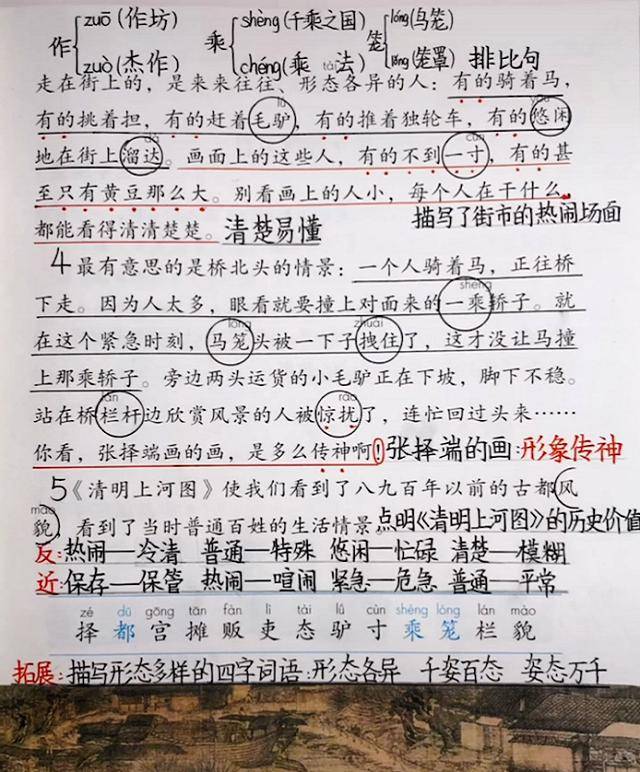 作 zuō(作坊) zuò(杰作) 乘 shèng(千乘之国) chéng(乘法) 笼 lóng(鸟笼) lǒng(笼罩) 排比句
tài
走在街上的，是来来往往、形态各异的人：有的骑着马，
lǘ yōu
有的挑着担，有的赶着毛驴，有的推着独轮车，有的悠闲
dá cùn
地在街上溜达。画面上的这些人，有的不到一寸，有的甚
至只有黄豆那么大。别看画上的人小，每个人在干什么，
都能看得清清楚楚。清楚易懂 描写了街市的热闹场面
4 最有意思的是桥北头的情景：一个人骑着马，正往桥
shèng
下走。因为人太多，眼看就要撞上对面来的一乘轿子。就
lóng zhuài
在这个紧急时刻，马笼头被一下子拽住了，这才没让马撞
上那乘轿子。旁边两头运货的小毛驴正在下坡，脚下不稳。
lán rǎo
站在桥栏杆边欣赏风景的人被惊扰了，连忙回过头来……
你看，张择端画的画，是多么传神啊！张择端的画：形象传神
5《清明上河图》使我们看到了八九百年以前的古都风
mào
貌，看到了当时普通百姓的生活情景 点明《清明上河图》的历史价值
反：热闹—冷清 普通—特殊 悠闲—忙碌 清楚—模糊
近：保存—保管 热闹—喧闹 紧急—危急 普通—平常
zé dū gōng tān fàn lì tài lǘ cùn shèng lóng lán mào
择 都 宫 摊 贩 吏 态 驴 寸 乘 笼 栏 貌
拓展：描写形态多样的四字词语：形态各异 千姿百态 姿态万千